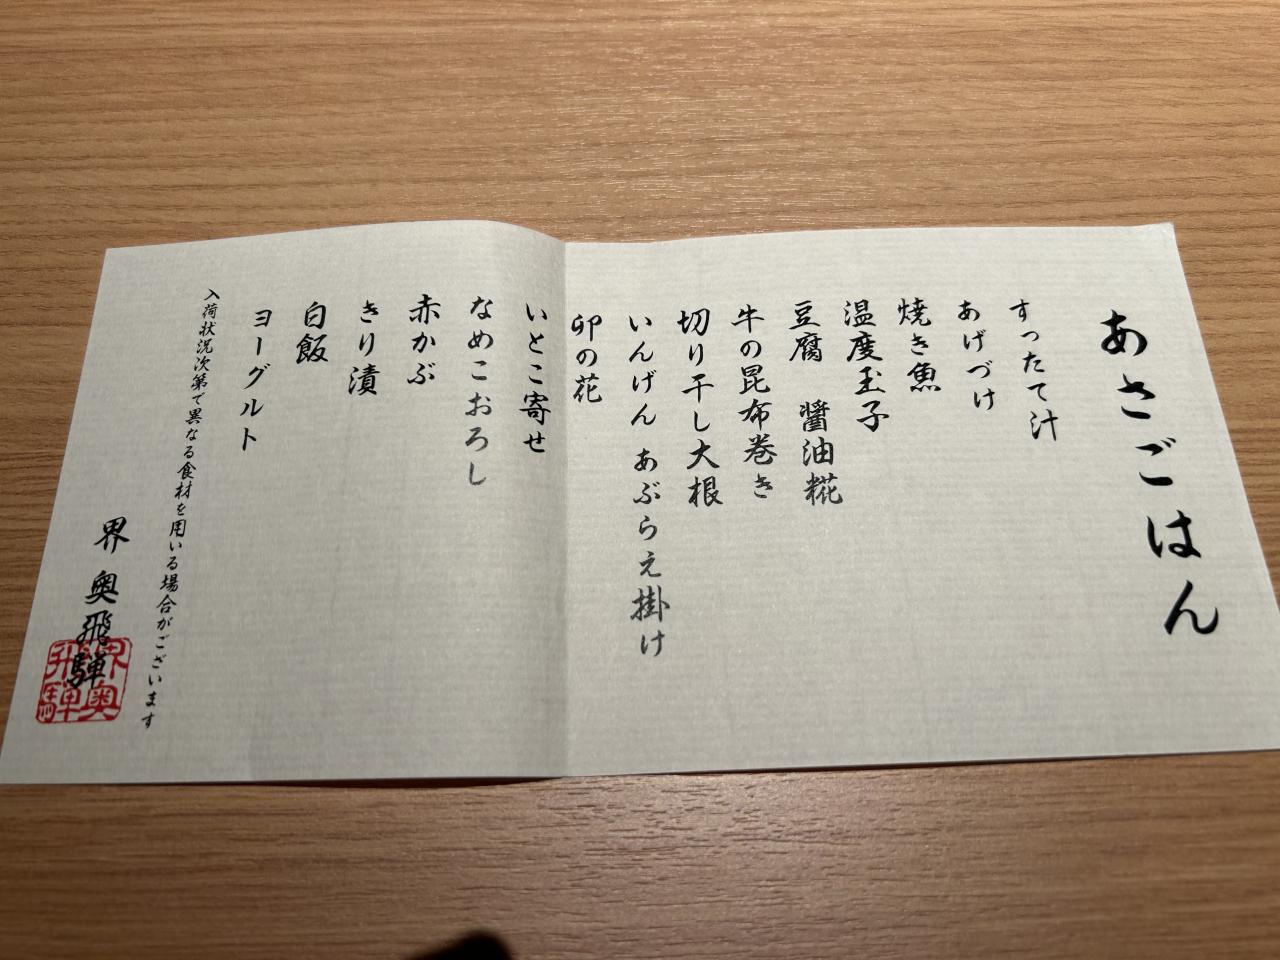 あさごはん
すったて汁
あげづけ
焼き魚
温度玉子
豆腐　醤油糀
牛の昆布巻き
切り干し大根
いんげん あぶらえ掛け
卯の花
いとこ寄せ
なめこおろし
赤かぶ
きり漬
白飯
ヨーグルト
入荷状況次第で異なる食材を用いる場合がございます
界 奥飛騨
界奥飛騨